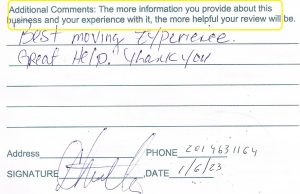 Additional Comments: The more information you provide about this
business and your experience with it, the more helpful your review will be.
Best moving Experience.
Great Help. Thank you
Address PHONE 2014631164
SIGNATURE DATE 1/6/23